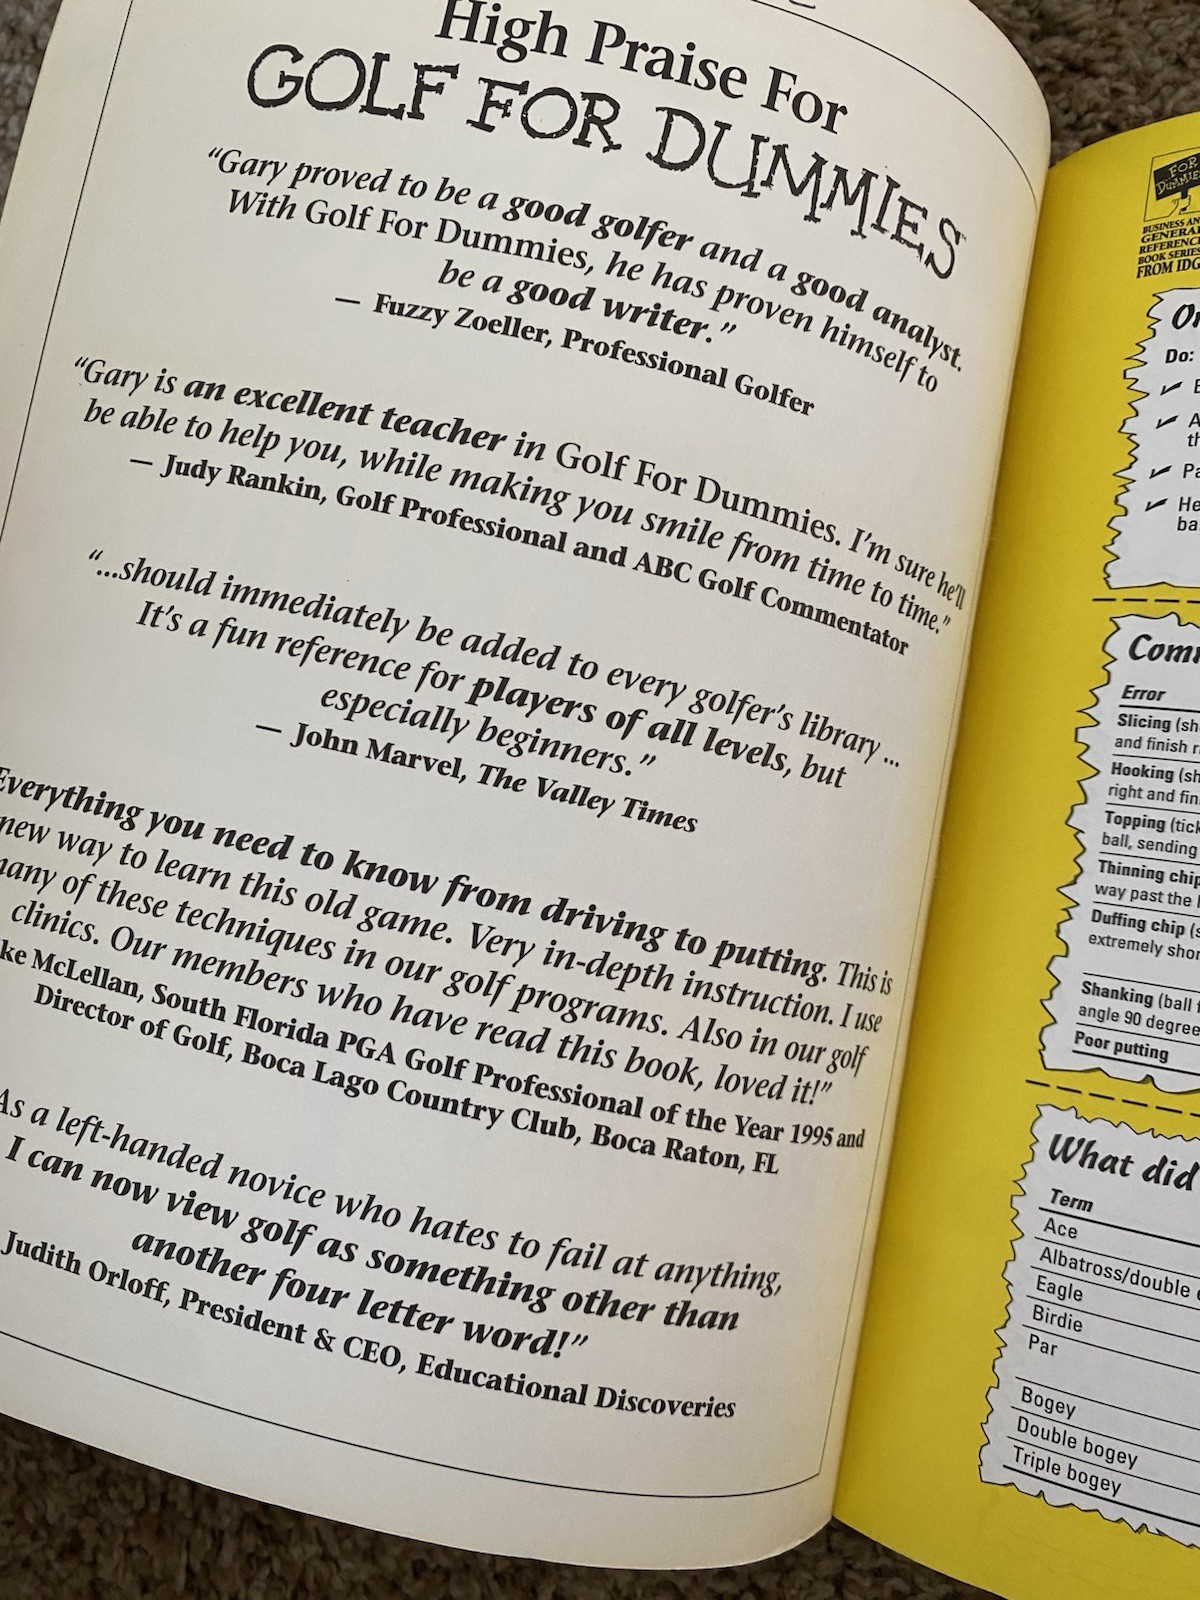 High Praise For
GOLF FOR DUMMIES
“Gary proved to be a good golfer and a good analyst.
With Golf For Dummies, he has proven himself to
be a good writer.”
— Fuzzy Zoeller, Professional Golfer
“Gary is an excellent teacher in Golf For Dummies. I’m sure he’ll
be able to help you, while making you smile from time to time.”
— Judy Rankin, Golf Professional and ABC Golf Commentator
“...should immediately be added to every golfer’s library ...
It’s a fun reference for players of all levels, but
especially beginners.”
— John Marvel, The Valley Times
Everything you need to know from driving to putting. This is
new way to learn this old game. Very in-depth instruction. I use
many of these techniques in our golf programs. Also in our golf
clinics. Our members who have read this book, loved it!”
McLellan, South Florida PGA Golf Professional of the Year 1995 and
Director of Golf, Boca Lago Country Club, Boca Raton, FL
As a left-handed novice who hates to fail at anything,
I can now view golf as something other than
another four letter word!”
Judith Orloff, President & CEO, Educational Discoveries
FOR
DUMMIES
BUSINESS AN
GENERAL
REFERENC
BOOK SERIES
FROM IDG
Do:
Error
Slicing (sh
and finish r
Hooking (sh
right and fin
Topping (tick
ball, sending
Thinning chip
way past the
Duffing chip (s
extremely shor
Shanking (ball
angle 90 degree
Poor putting
What did
Term
Ace
Albatross/double
Eagle
Birdie
Par
Bogey
Double bogey
Triple bogey